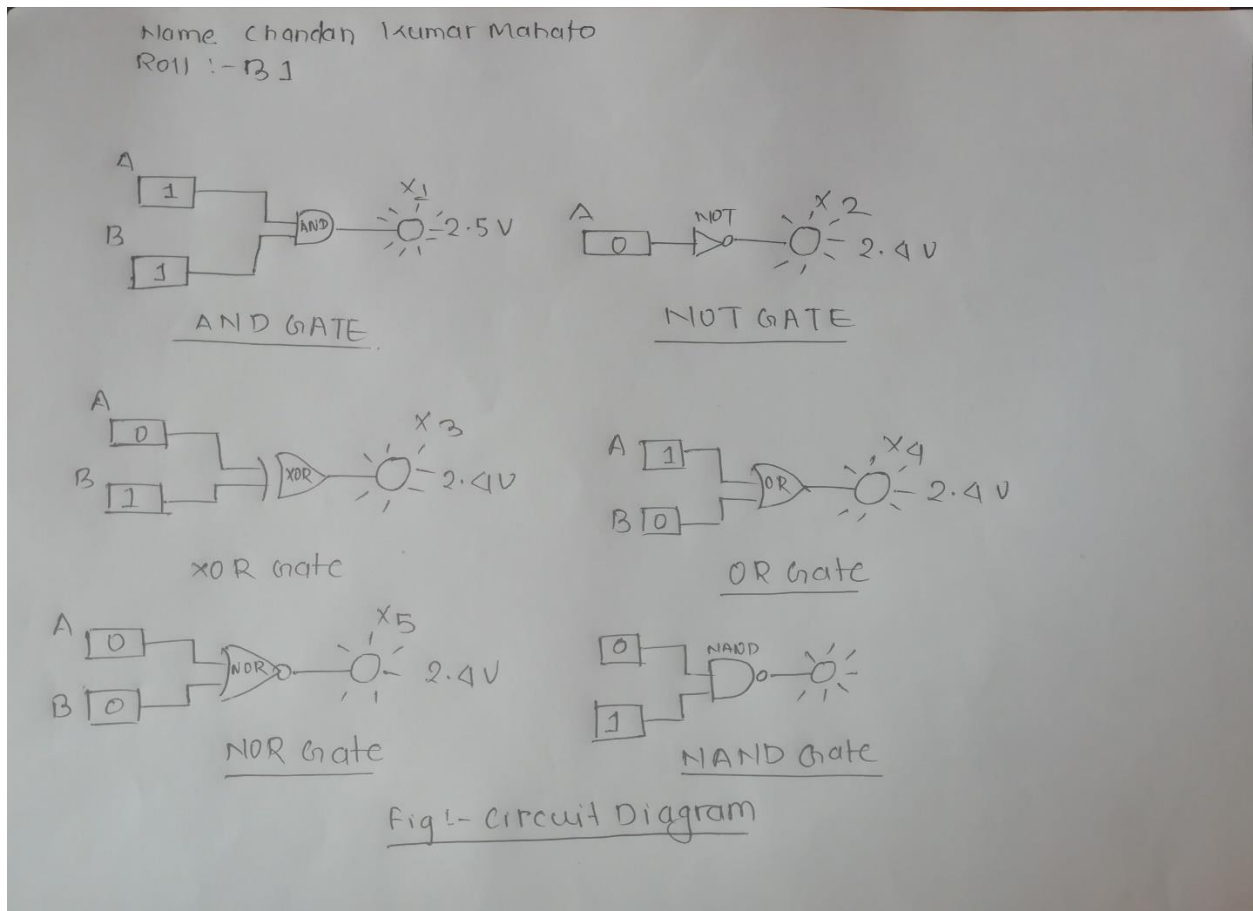 Name Chandan Kumar Mahato
Roll :- B1
A
1
X1
AND
2.5 V
B
1
AND GATE
A
0
NOT
X2
2.4 V
NOT GATE
A
0
X3
XOR
2.4 V
B
1
XOR Gate
A
1
X4
OR
2.4 V
B
0
OR Gate
A
0
X5
NOR
2.4 V
B
0
NOR Gate
0
NAND
1
NAND Gate
Fig :- Circuit Diagram